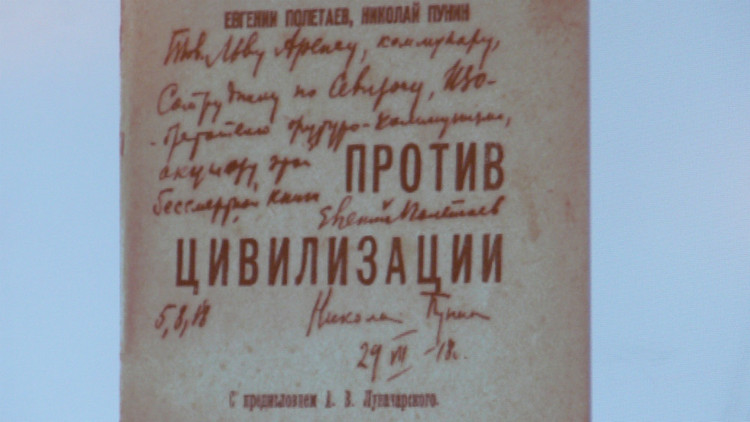 ЕВГЕНИЙ ПОЛЕТАЕВ, НИКОЛАЙ ПУНИН
Тов. Льву Аренсу, коммунару,
Сотруднику по Севпросу, Изо-
бретателю футуро-коммунизма,
акушеру этой
бессмертной книги
ПРОТИВ
Евгений Полетаев
ЦИВИЛИЗАЦИИ
5,8,18
Николай Пунин
29 VII -18г.
С предисловием А. В. Луначарского.